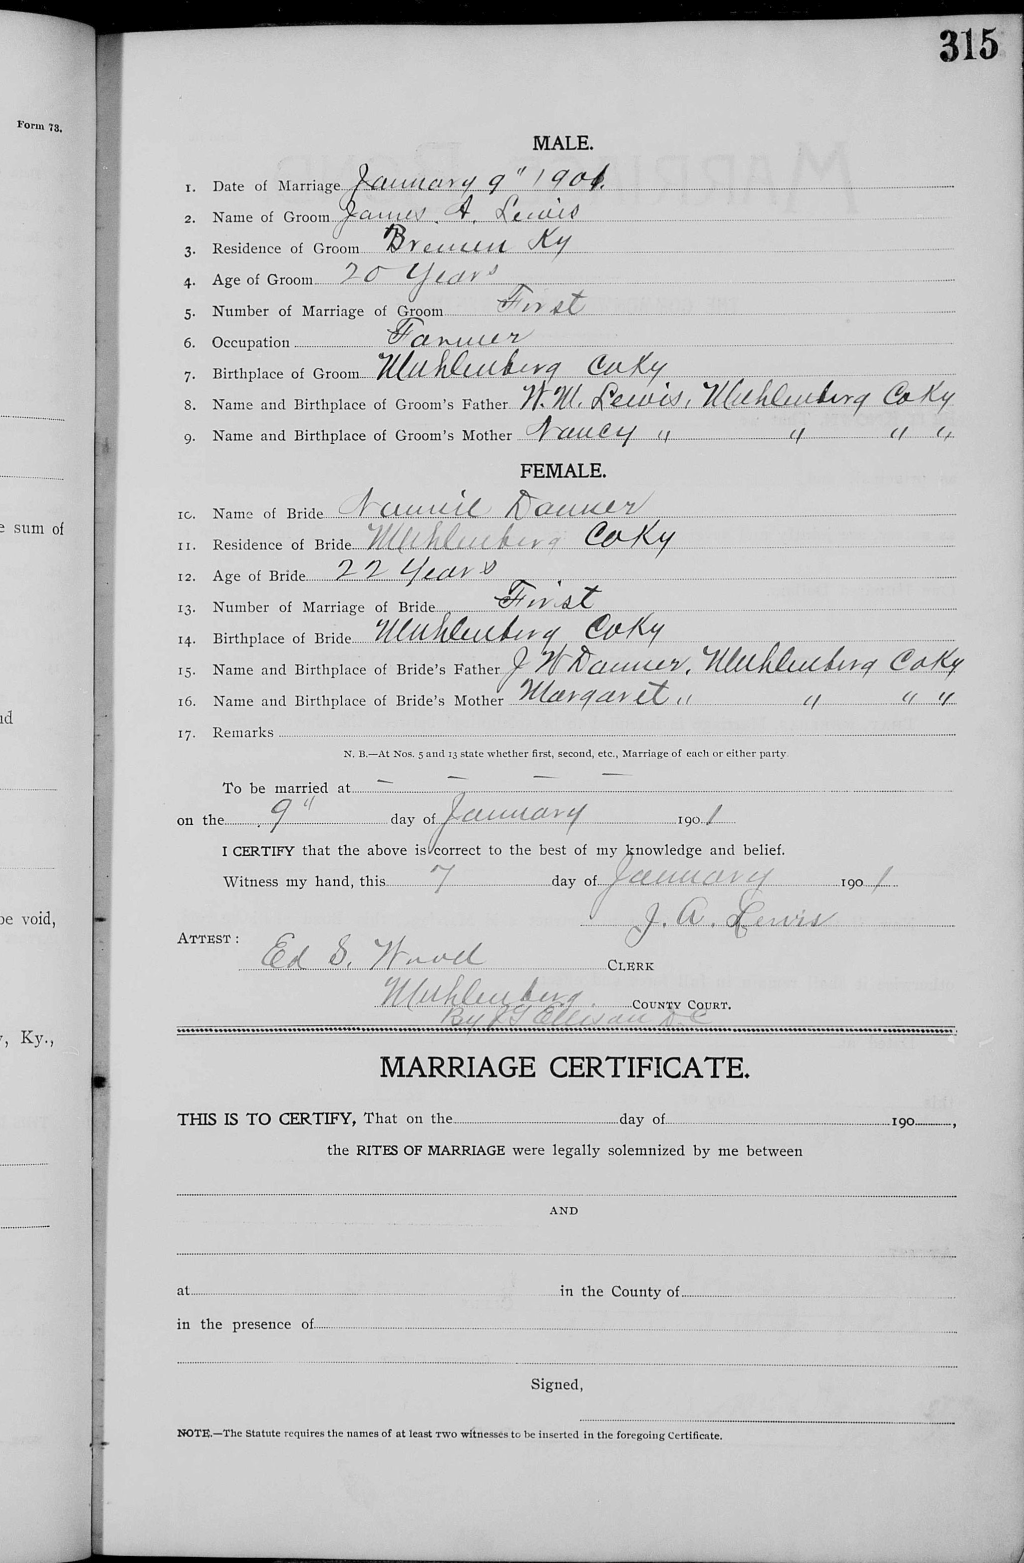 315
Form 73.
MALE.
1. Date of Marriage January 9" 1901.
2. Name of Groom James A. Lewis
3. Residence of Groom Bremen Ky
4. Age of Groom 20 Years
5. Number of Marriage of Groom First
6. Occupation Farmer
7. Birthplace of Groom Muhlenberg Co Ky
8. Name and Birthplace of Groom's Father W. M. Lewis, Muhlenberg Co Ky
9. Name and Birthplace of Groom's Mother Nancy " " " "
FEMALE.
10. Name of Bride Nannie Danner
e sum of
11. Residence of Bride Muhlenberg Co Ky
12. Age of Bride 22 Years
13. Number of Marriage of Bride First
14. Birthplace of Bride Muhlenberg Co Ky
15. Name and Birthplace of Bride's Father J W Danner, Muhlenberg Co Ky
16. Name and Birthplace of Bride's Mother Margaret " " " "
17. Remarks
N. B.—At Nos. 5 and 13 state whether first, second, etc., Marriage of each or either party.
To be married at — — — —
on the 9" day of January 1901
I CERTIFY that the above is correct to the best of my knowledge and belief.
Witness my hand, this 7 day of January 1901
be void,
J. A. Lewis
ATTEST:
Ed S. Wood CLERK
Muhlenberg. COUNTY COURT.
By J G Ellison D.C
, Ky.,
MARRIAGE CERTIFICATE.
THIS IS TO CERTIFY, That on the day of 190 ,
the RITES OF MARRIAGE were legally solemnized by me between
AND
at in the County of
in the presence of
Signed,
NOTE.—The Statute requires the names of at least TWO witnesses to be inserted in the foregoing Certificate.